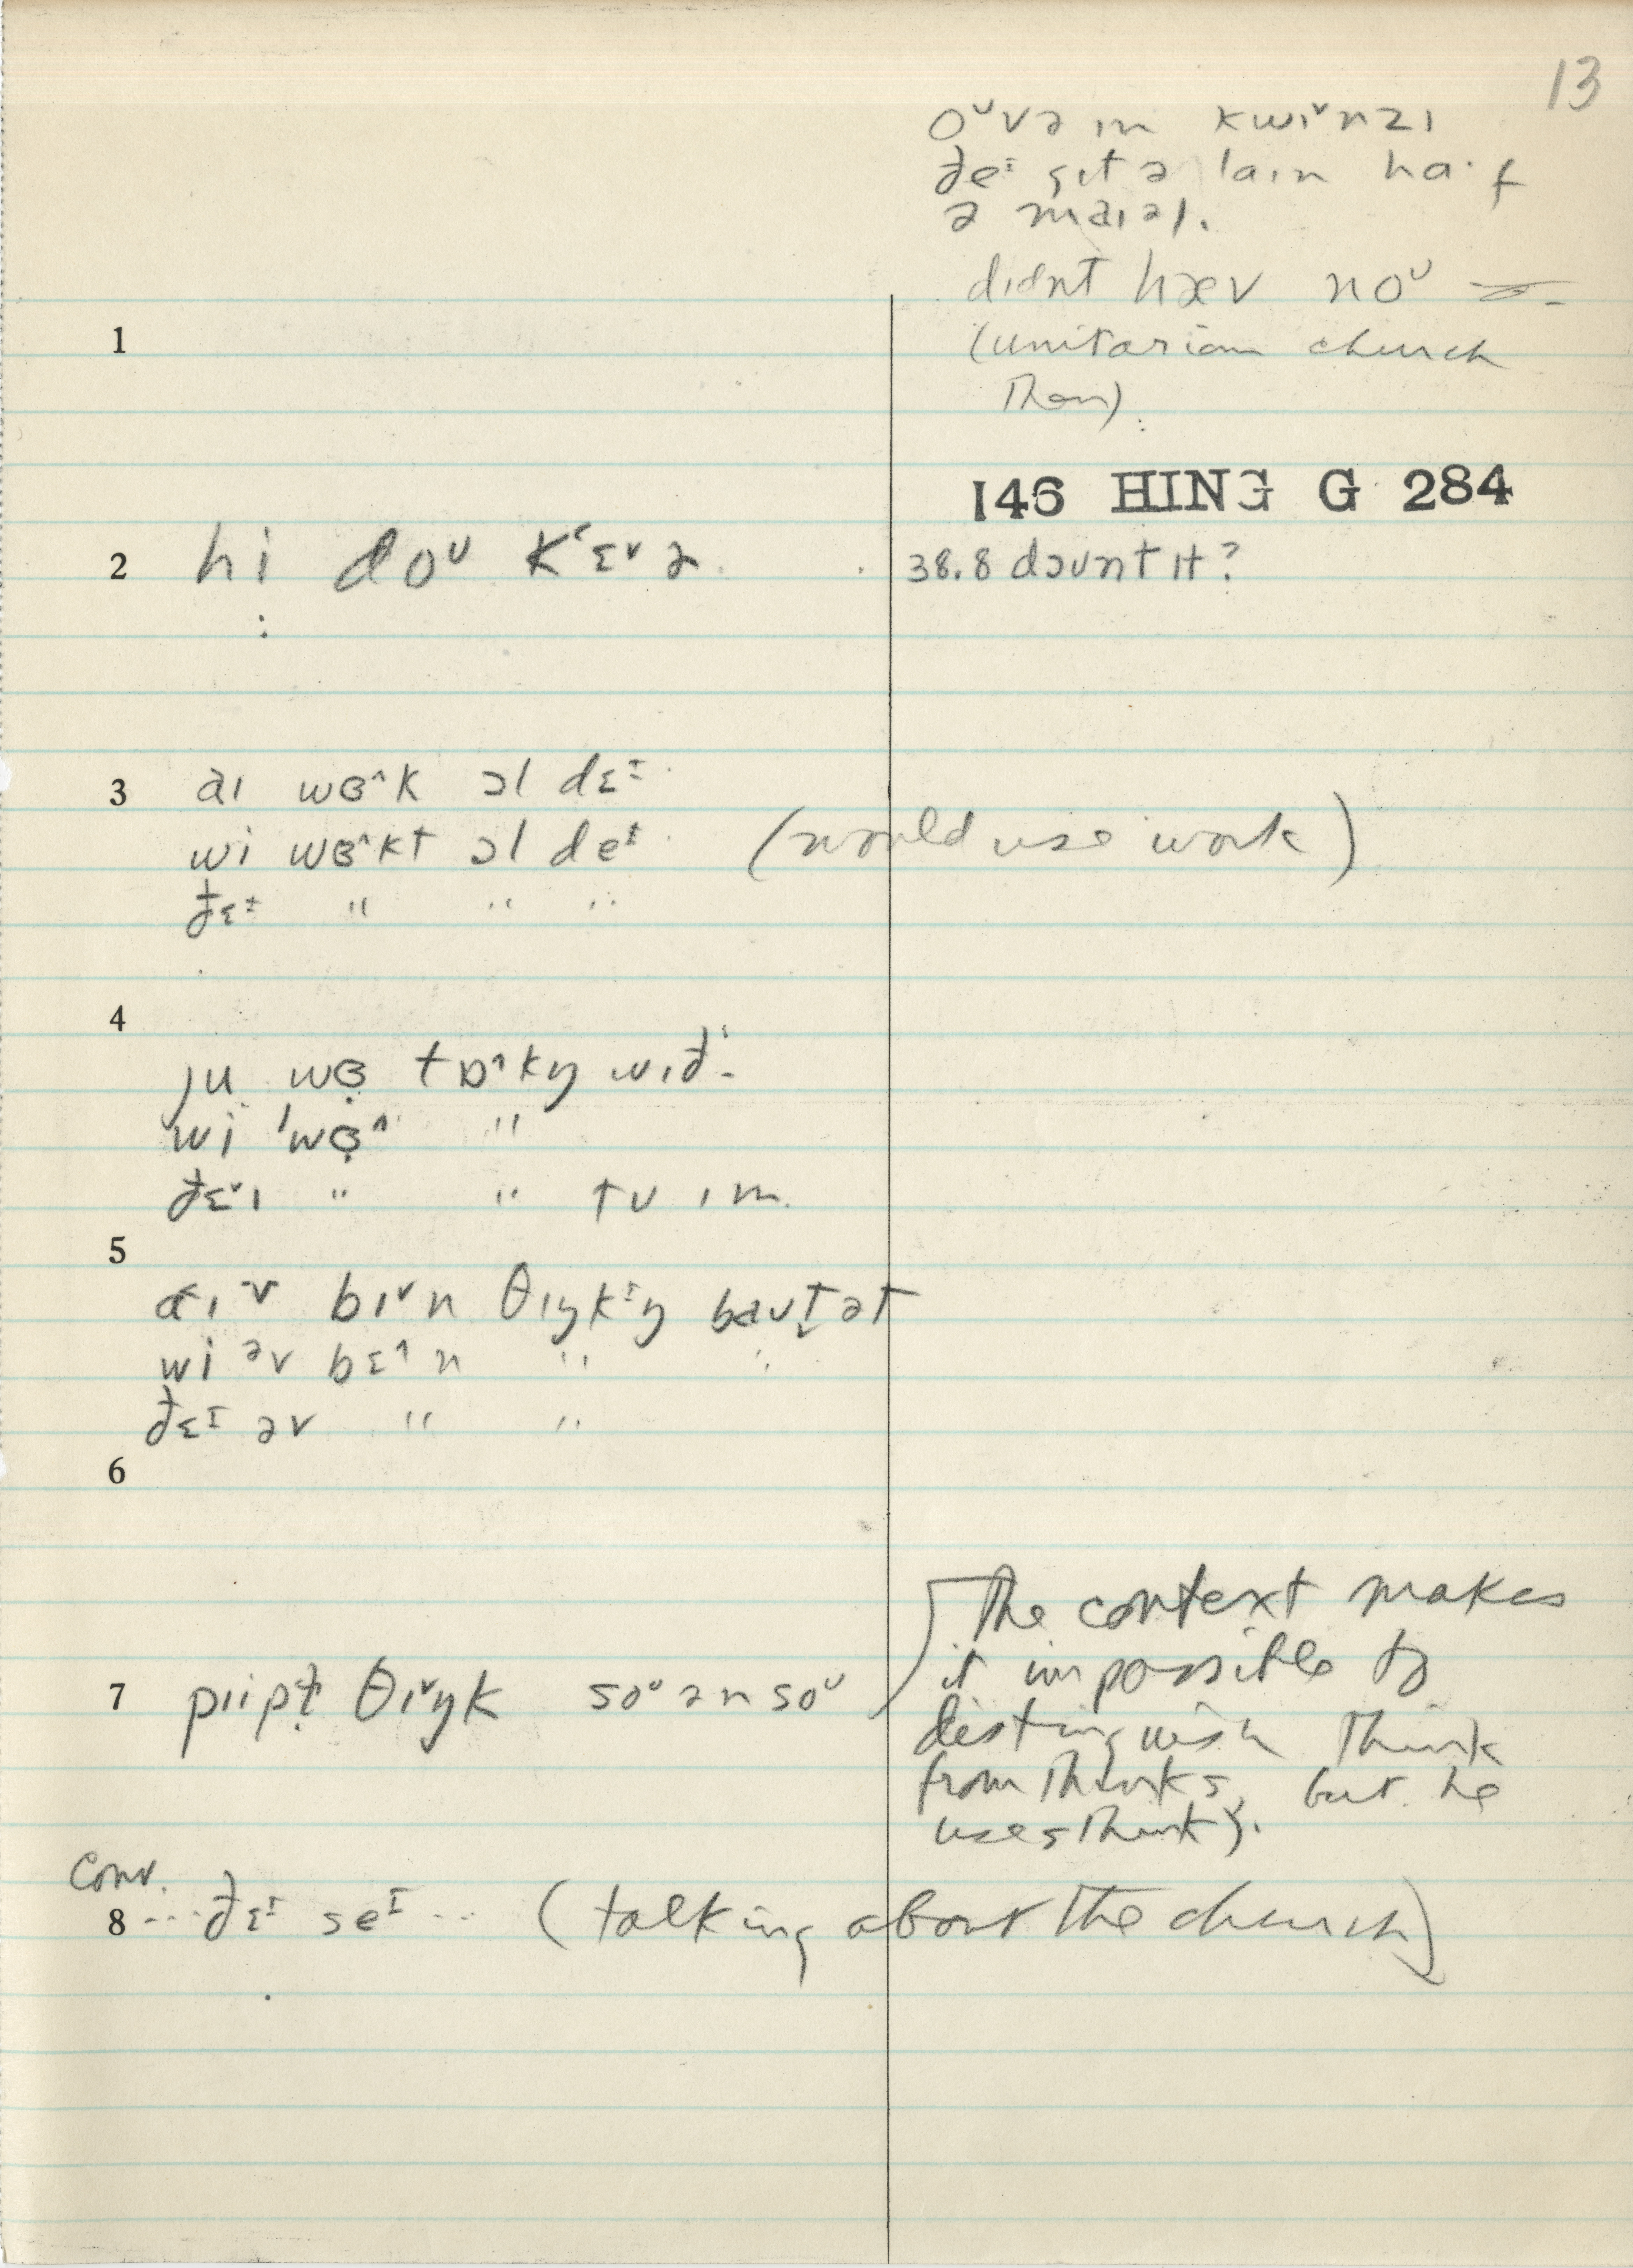 13
oᵕvə ɪn kwɪˇnzɪ
ðeᶦ git ə laɪn ha·f
ə maɪəl.
dɪdnt hæv noᵕ —
(unitarian church
then).
146 HING G 284
1
2 hi doᵁ kʽɛˇə
38.8 dəʊnt ɪt?
3 aɪ wɞ^k ɔl dɛᶦ
wi wɞ^kt ɔl deᶦ (would use work)
ðɛᶦ " " "
4
ju wɞ̣ tɒ^kŋ wɪð
wi 'wɞ̣^ "
ðɛˇɪ " " tʊ ɪm.
5
aɪ v bɪˇn θɪŋkᶦŋ baʊt̬ət
wi əv bɛ^n " "
ðɛᶦ əv " "
6
7 piipɫ̣ θɪˇŋk soᵁ ən soᵁ
The context makes
it impossible to
distinguish think
from thinks, but he
uses think).
Conv.
8 ... ðɛᶦ seᶦ ... (talking about the church)